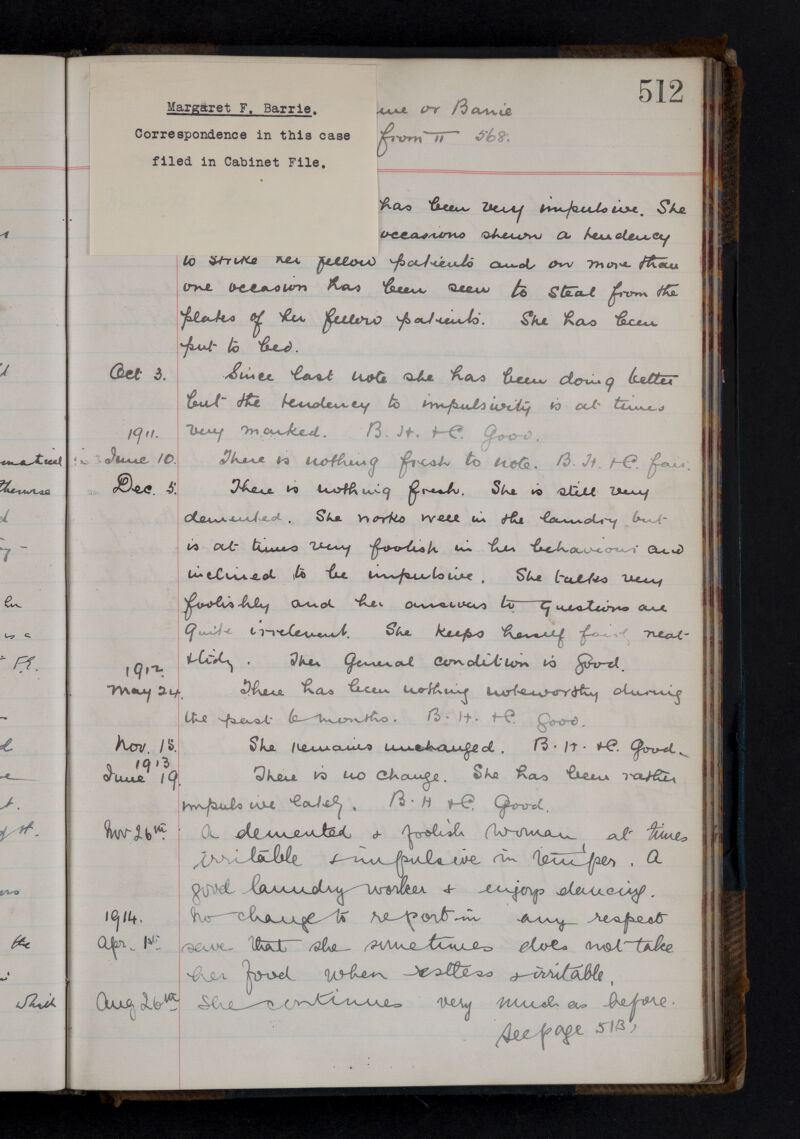 512
Margaret F. Barrie.
Correspondence in this case
filed in Cabinet File.
or Barrie
from II 568.
has been very impulsive. She
occasions shewn a tendency
to strike her fellow patients and on more than
one occasion has been seen to steal from the
plates of her fellow patients. She has been
put to bed.
Oct 3. Since last note she has been doing better
but the tendency to impulsivity is at times
very marked. B.H. & C. Good.
1911.
June 10. There is nothing fresh to note. B.H. & C. fair.
Dec. 5. There is nothing fresh. She is still very
demented. She works well in the laundry but
is at times very foolish in her behaviour and
inclined to be impulsive. She talks very
foolishly and her answers to questions are
quite irrelevant. She keeps herself fairly neat
& tidy. Her general condition is good.
1912.
May 24. There has been nothing noteworthy during
the past 6 months. B.H. & C. good.
Nov. 15. She remains unchanged. B.H. & C. Good.
1913
June 19. There is no change. She has been rather
impulsive lately. B.H & C. Good.
Nov 26th A demented & foolish woman, at times
irritable & impulsive in temper. A
good laundry worker & enjoys dancing.
1914. No change to report in any respect
Apr. 1st save that she sometimes does not take
her food when restless & irritable.
Aug 26th She continues very much as before.
See page 513,
otherwise
the
which